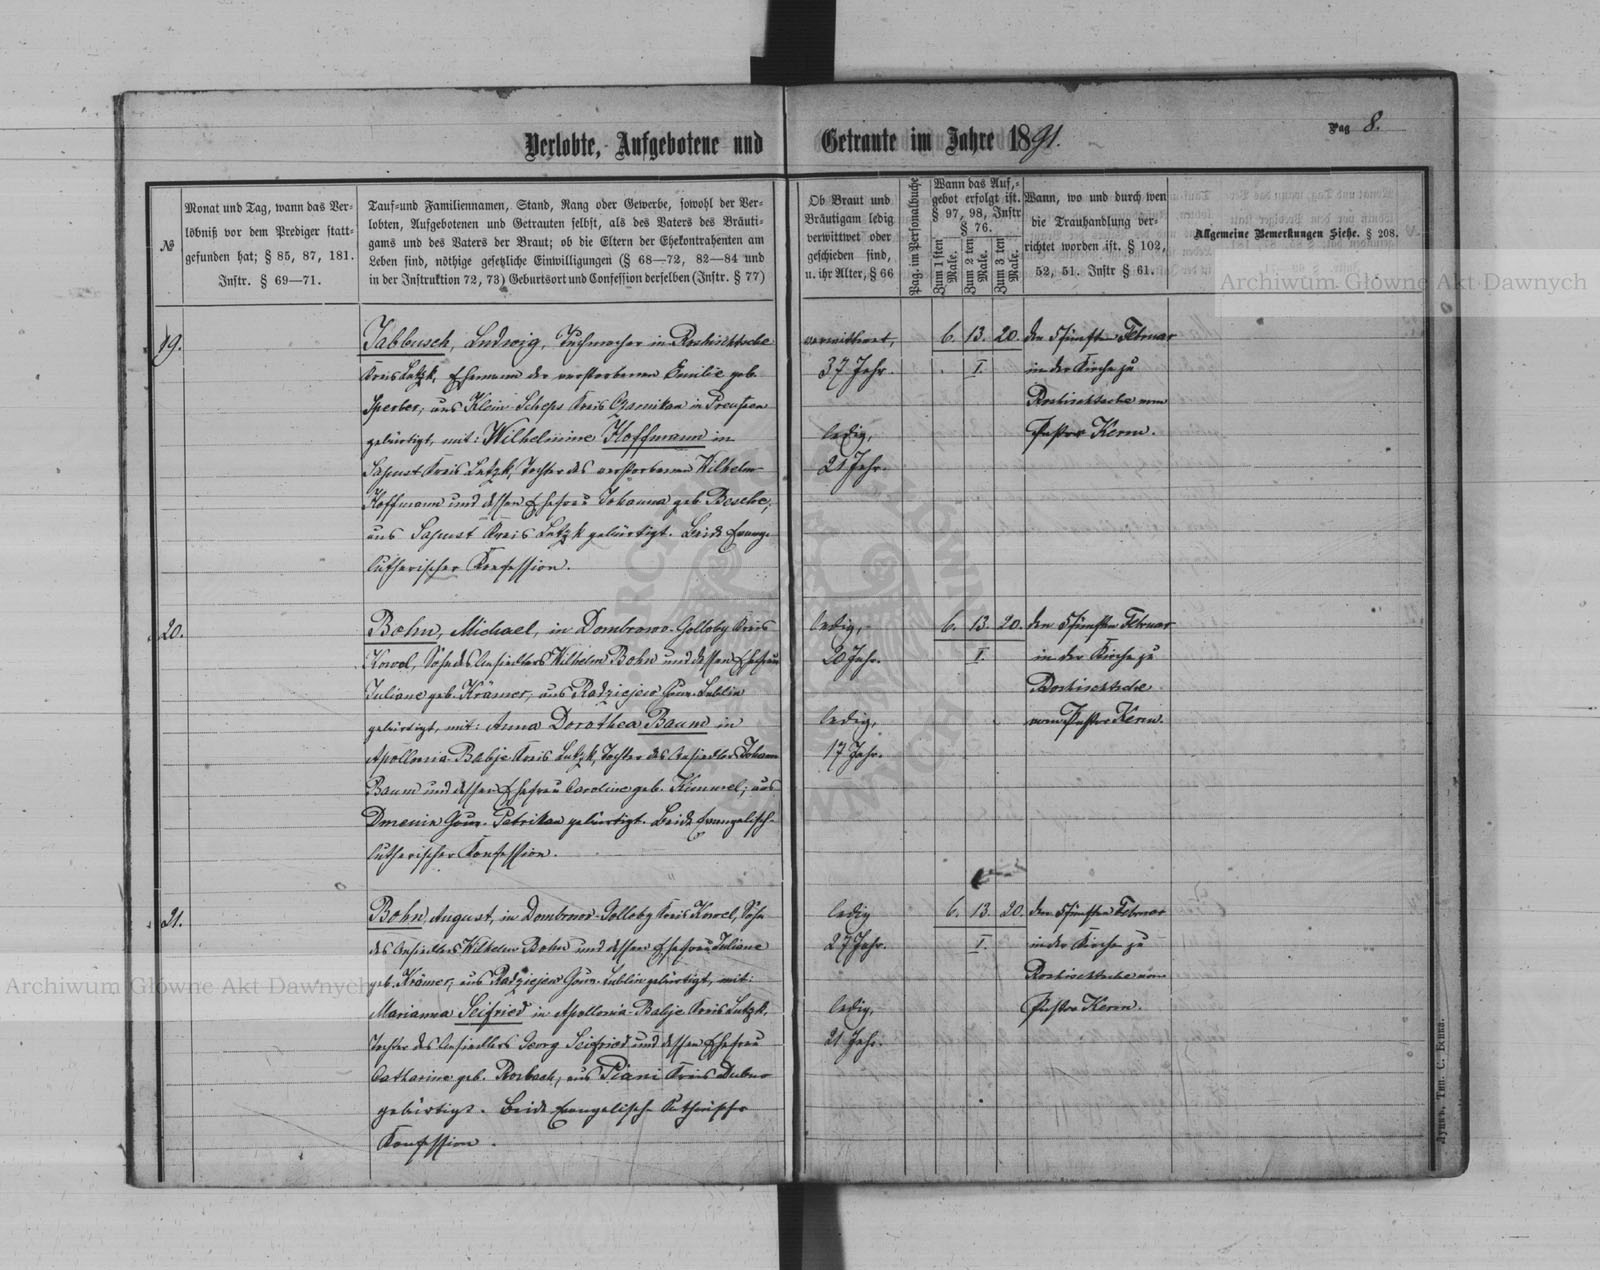 Verlobte, Aufgebotene und Getraute im Jahre 1891.
Pag 8.
№
Monat und Tag, wann das Ver-
löbniß vor dem Prediger statt-
gefunden hat; § 85, 87, 181.
Instr. § 69—71.
Tauf-und Familiennamen, Stand, Rang oder Gewerbe, sowohl der Ver-
lobten, Aufgebotenen und Getrauten selbst, als des Vaters des Bräuti-
gams und des Vaters der Braut; ob die Eltern der Ehekontrahenten am
Leben sind, nöthige gesetzliche Einwilligungen (§ 68—72, 82—84 und
in der Instruktion 72, 73) Geburtsort und Confession derselben (Instr. § 77)
Ob Braut und
Bräutigam ledig
verwittwet oder
geschieden sind,
u. ihr Alter, § 66
Pag. im Personalbuche
Wann das Auf-
gebot erfolgt ist.
§ 97, 98, Instr
§ 76.
Zum 1 sten Male.
Zum 2 ten Male.
Zum 3 ten Male.
Wann, wo und durch wen
die Trauhandlung ver-
richtet worden ist. § 102,
52, 51. Instr § 61.
Allgemeine Bemerkungen Siehe. § 208.
Archiwum Główne Akt Dawnych
19.
Jabbusch, Ludwig, Tuchmacher in Roshischtsche
Kreis Lutzk, Ehemann der verstorbenen Emilie geb.
Sperber, aus Klein Scheps Kreis Czarnikau in Preußen
gebürtigt, mit: Wilhelmine Hoffmann in
Sapust Kreis Lutzk, Tochter des verstorbenen Wilhelm
Hoffmann und dessen Ehefrau Johanna geb. Besche,
aus Sapust Kreis Lutzk gebürtigt. Beide Evang.
lutherischer Konfession.
verwittwet,
37 Jahr.
ledig,
21 Jahr.
6. 13. 20.
I.
den 5 fünften Februar
in der Kirche zu
Roshischtsche vom
Pastor Kerm.
20.
Bohn, Michael, in Dombrowo-Golloby Kreis
Kowel, Sohn des Ansiedlers Wilhelm Bohn und dessen Ehefrau
Juliane geb. Krämer, aus Radziejow Gouv. Lublin
gebürtigt, mit: Anna Dorothea Baum in
Apollonia-Babje Kreis Lutzk, Tochter des Ansiedlers Johann
Baum und dessen Ehefrau Caroline geb. Kimmel, aus
Dmenin Gouv. Petrikau gebürtigt. Beide Evangelisch-
lutherischer Konfession.
ledig,
20 Jahr.
ledig,
17 Jahr.
6. 13. 20.
I.
den 5 fünften Februar
in der Kirche zu
Roshischtsche
vom Pastor Kerm.
21.
Bohn, August, in Dombrowo-Golloby Kreis Kowel, Sohn
des Ansiedlers Wilhelm Bohn und dessen Ehefrau Juliane
geb. Krämer, aus Radziejow Gouv. Lublin gebürtigt, mit:
Marianna Seifried in Apollonia-Babje Kreis Lutzk,
Tochter des Ansiedlers Georg Seifried und dessen Ehefrau
Catharine geb. Rosbach, aus Piani Kreis Dubno
gebürtigt. Beide Evangelisch-Lutherischer
Konfession.
ledig
27 Jahr.
ledig,
21 Jahr.
6. 13. 20.
I.
den 5 fünften Februar
in der Kirche zu
Roshischtsche vom
Pastor Kerm.
Archiwum Główne Akt Dawnych